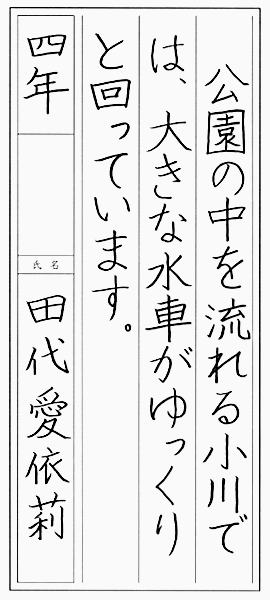 公園の中を流れる小川で
は、大きな水車がゆっくり
と回っています。
四年
氏名
田代愛依莉